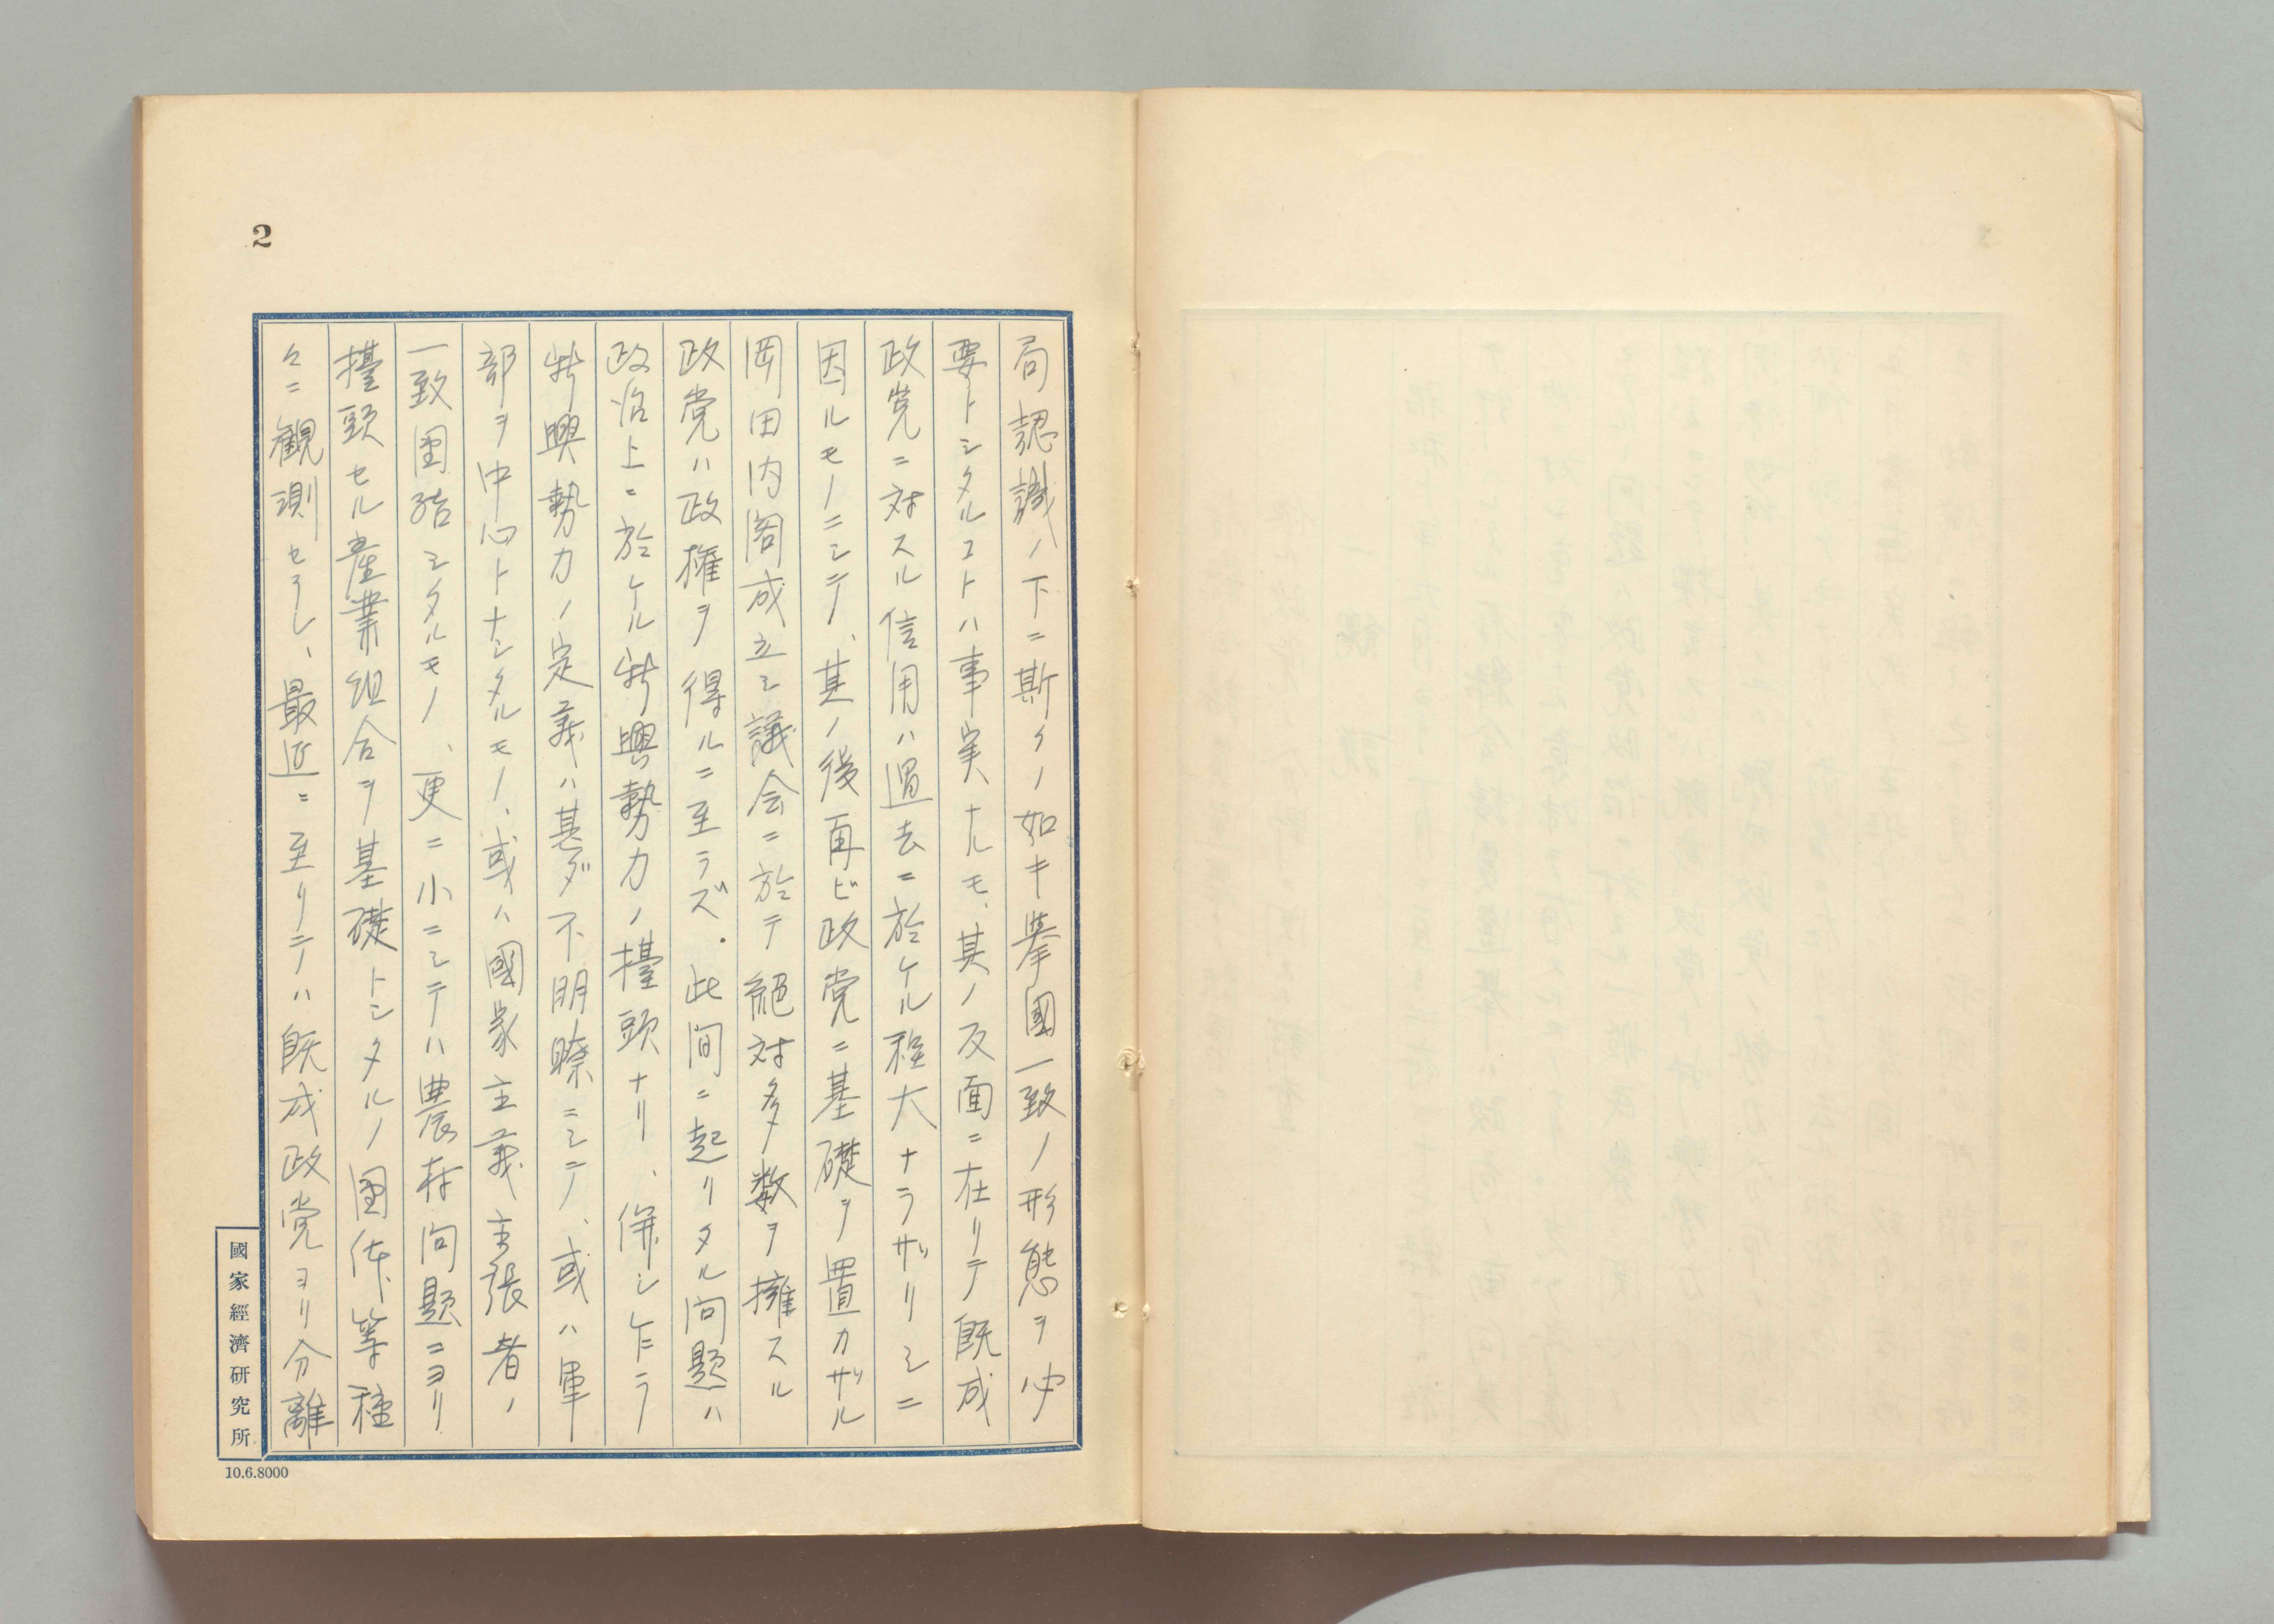 2
局認識ノ下ニ斯クノ如キ挙國一致ノ形態ヲ必
要トシタルコトハ事実ナルモ、其ノ反面ニ在リテ既成
政党ニ対スル信用ハ過去ニ於ケル程大ナラザリシニ
因ルモノニシテ、其ノ後再ビ政党ニ基礎ヲ置カザル
岡田内閣成立シ議会ニ於テ絶対多数ヲ擁スル
政党ハ政権ヲ得ルニ至ラズ。此間ニ起リタル问題ハ
政治上ニ於ケル新興勢力ノ擡頭ナリ、併シ乍ラ
新興勢力ノ定義ハ甚ダ不明瞭ニシテ、或ハ軍
部ヲ中心トナシタルモノ、或ハ國家主義主張者ノ
一致団結シタルモノ、更ニ小ニシテハ農村问題ニヨリ
擡頭セル産業組合ヲ基礎トシタルノ団体、等種
々ニ観測セラレ、最近ニ至リテハ既成政党ヨリ分離
國家經濟研究所
10.6.8000